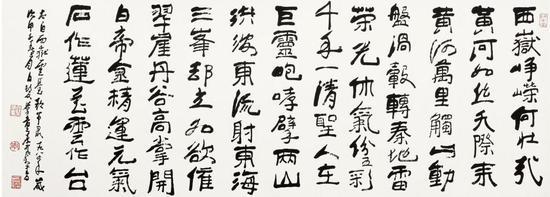 西嶽崢嶸何壯哉
黃河如絲天際來
黃河萬里觸山動
盤渦轂轉秦地雷
榮光休氣紛五彩
千年一清聖人在
巨靈咆哮擘兩山
洪波東流射東海
三峯却立如欲摧
翠崖丹谷高掌開
白帝金精運元氣
石作蓮花雲作台